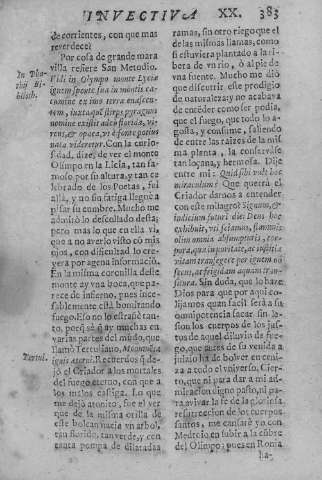 INVECTIVA XX. 383
de corrientes, con que mas
reverdece?
Por cosa de grande mara
villa refiere San Metodio.
Vidi in Olympo monte Lyciæ
ignem sponte sua in montis ca-
cumine ex imo terra enascen-
tem, iuxtaque
nomine existit adeo florida, vi-
rens, & opaca, vt è fonte potius
nata videretur. Con la curio-
sidad, dize, de ver el monte
Olimpo en la Licia, tan fa-
moso por su altura, y tan ce
lebrado de los Poetas, fui
allà, y no sin fatiga lleguè a
pisar su cumbre. Mucho me
admirò lo descollado desta;
pero mas lo que en ella vi,
que a no averlo visto cõ mis
ojos, con dificultad lo cre-
yera por agena informaciõ.
En la misma coronilla deste
monte ay vna boca, que pa-
rece de infierno, pues inces-
sablemente està bomitando
fuego. Esso no lo estrañè tan-
to, porq̃ sè q̃ ay muchas en
varias partes del mũdo, que
llamò Tertuliano,
Recuerdos q̃ de
jò el Criador a los mortales
del fuego eterno, con que a
los malos castiga. Lo que
me dejò atonito, fue el ver
que de la misma orilla de
este bolcan nacia vn arbol,
tan florido, tan verde, y con
tanta pompa de dilatadas
In
Tertul.
ramas, sin otro riego que el
de las mismas llamas, como
si estuviera plantado a la ri-
bera de vn rio, ò al pie de
vna fuente. Mucho me diò
que discurrir este prodigio
de naturaleza: y no acabava
de entèder como ser podia,
que el fuego, que todo lo a-
gosta, y consume, saliendo
de entre las raizes de la mis
ma planta, la conservasse
tan loçana, y hermosa. Dije
entre mi: Quid sibi vult hoc
miraculum? Que querrà el
Criador darnos a entender
con este milagro? Signum, &
iudicium futuri diei Deus hoc
exhibuit, vt sciamus, flammis
olim omnia absumptura,
Sin duda, que lo hace
Dios para que por aqui co-
lijamos quan facil serà a su
omnipotencia sacar sin le-
sion los cuerpos de los jus-
tos de aquel diluvio de fue-
go, que antes de su venida a
juizio ha de bolver en ceni-
za a todo el vniverso. Cier-
to, que ni para dar a mi ad-
miracion digno pasto, ni pa-
ra avivar la fe de la gloriosa
resurreccion de los cuerpos
santos, me cansarè yo con
Metodio en subir a la cũbre
del Olimpo; pues en Roma
ha-